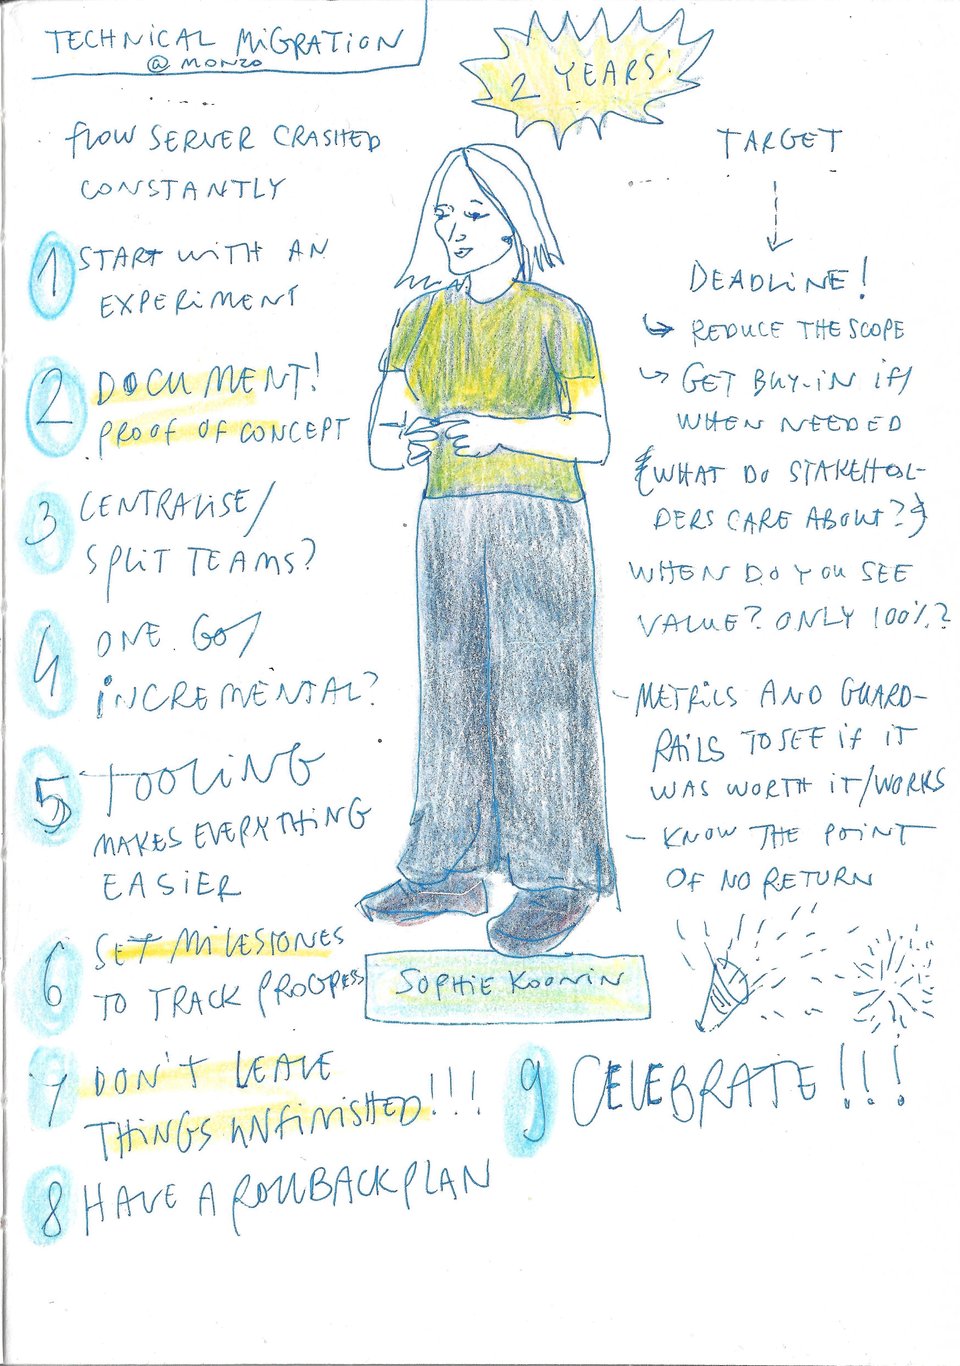 TECHNICAL MIGRATION
@ MONZO
2 YEARS!
FLOW SERVER CRASHED
CONSTANTLY
1 START WITH AN
EXPERIMENT
2 DOCUMENT!
PROOF OF CONCEPT
3 CENTRALISE/
SPLIT TEAMS?
4 ONE GO/
INCREMENTAL?
5 TOOLING
MAKES EVERYTHING
EASIER
6 SET MILESTONES
TO TRACK PROGRESS
7 DON'T LEAVE
THINGS UNFINISHED!!!
8 HAVE A ROLLBACK PLAN
TARGET
DEADLINE!
↳ REDUCE THE SCOPE
↳ GET BUY-IN IF/
WHEN NEEDED
{WHAT DO STAKEHOL-
DERS CARE ABOUT?}
WHEN DO YOU SEE
VALUE? ONLY 100%?
- METRICS AND GUARD-
RAILS TO SEE IF IT
WAS WORTH IT/WORKS
- KNOW THE POINT
OF NO RETURN
SOPHIE KOONIN
9 CELEBRATE!!!